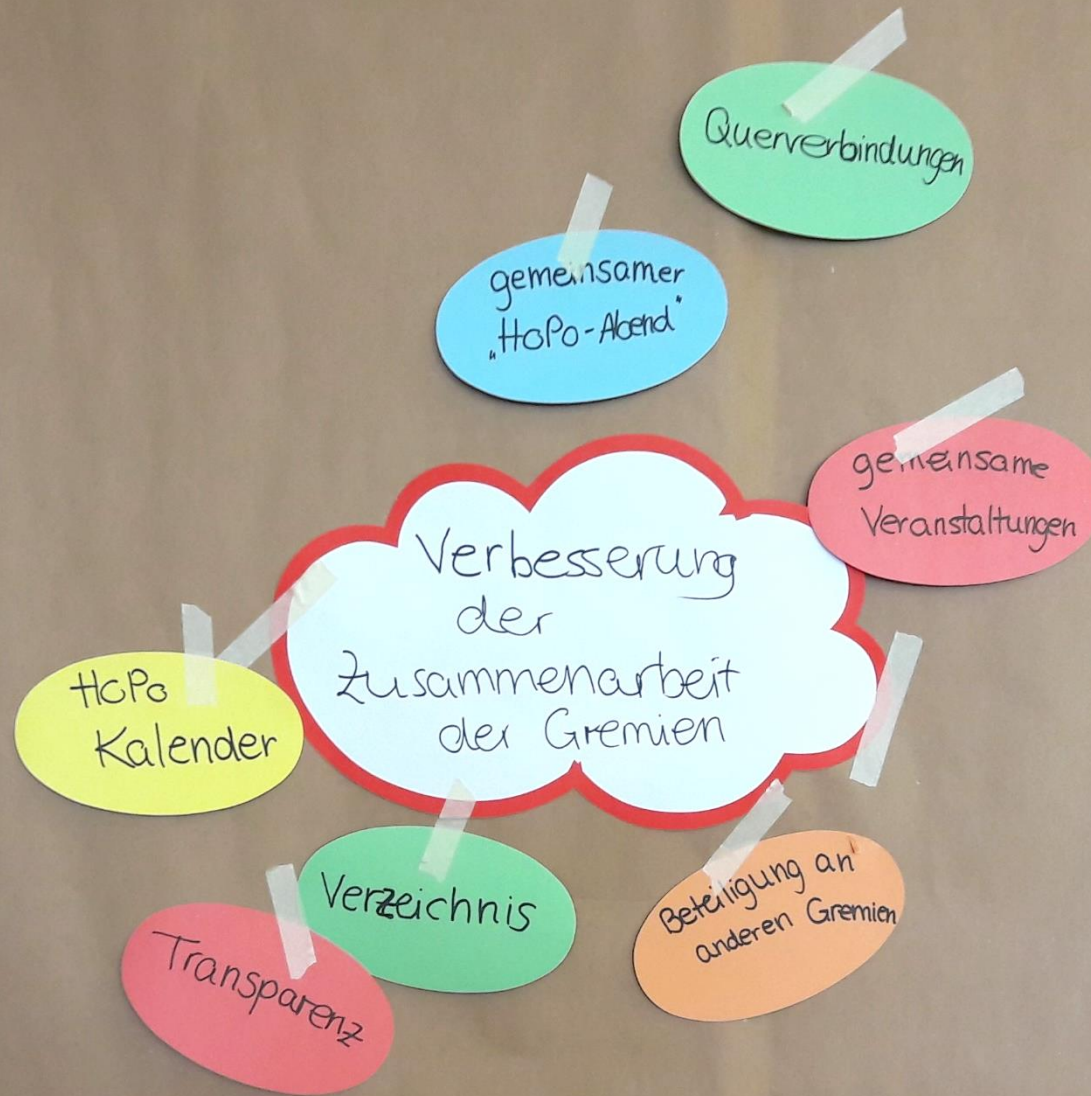 Querverbindungen
gemeinsamer
„HoPo-Abend"
gemeinsame
Veranstaltungen
Verbesserung
der
Zusammenarbeit
der Gremien
HoPo
Kalender
Verzeichnis
Beteiligung an
anderen Gremien
Transparenz